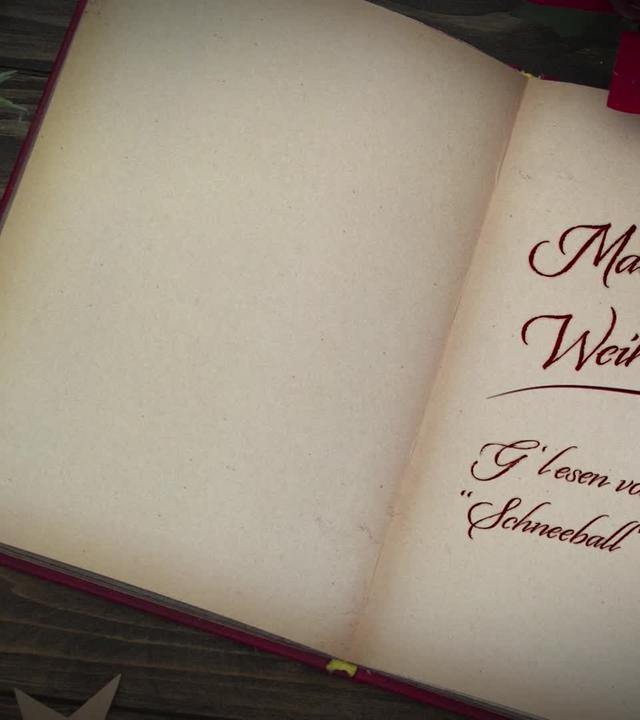 Ma
Wei
G'lesen vo
"Schneeball"